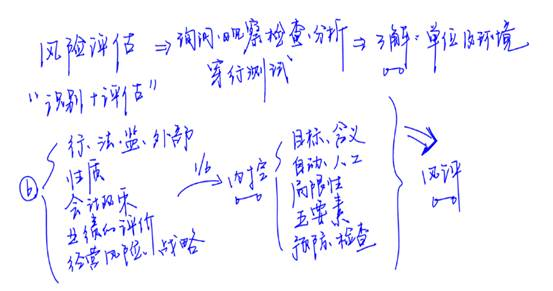 风险评估 ⇒ 询问、观察检查、分析 ⇒ 了解:单位及环境
穿行测试
“识别+评估”
⑥
行、法、监、外部
性质
会计政策
业绩的评价
经营风险、战略
1/6
内控
目标、含义
自动、人工
局限性
五要素
预防、检查
风评